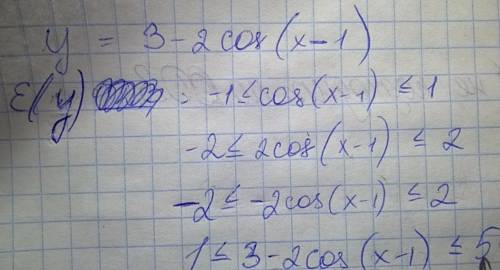 y = 3 - 2cos(x-1)
E(y) = -1 ≤ cos(x-1) ≤ 1
-2 ≤ 2cos(x-1) ≤ 2
-2 ≤ -2cos(x-1) ≤ 2
1 ≤ 3-2cos(x-1) ≤ 5